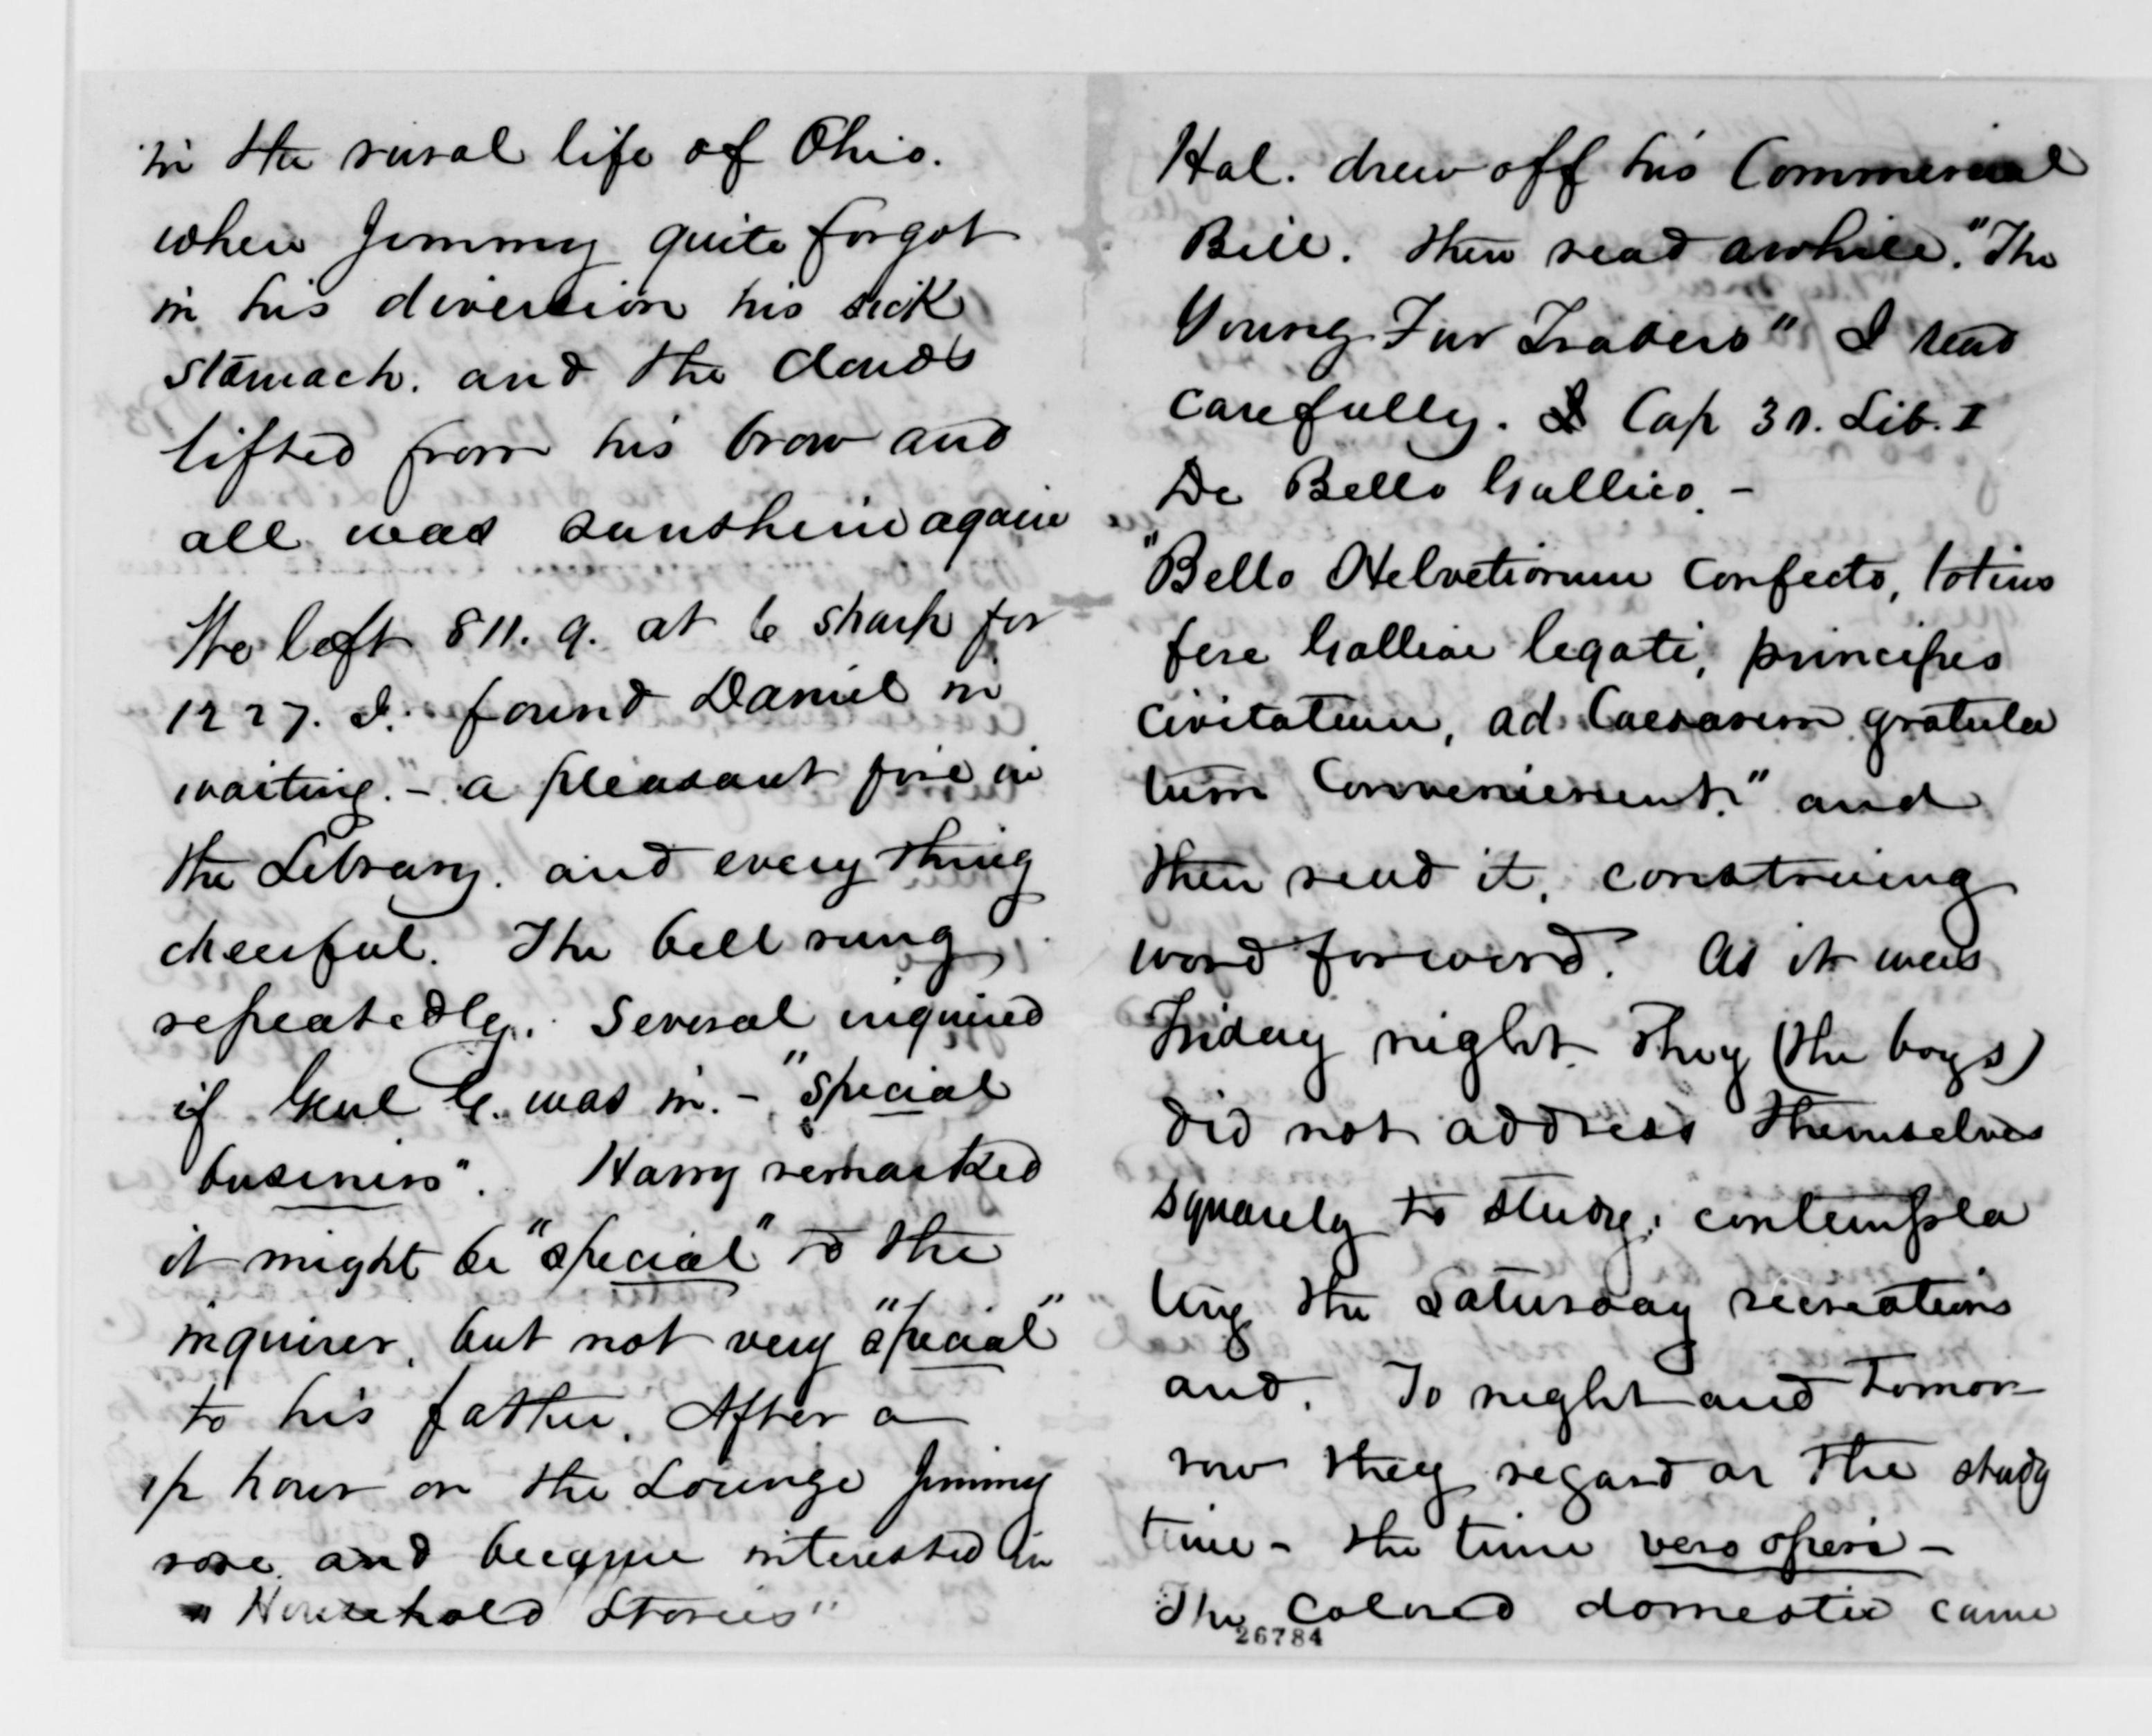 in the rural life of Ohio.
when Jimmy quite forgot
in his diversion his sick
stomach. and the clouds
lifted from his brow and
all was sunshine again
We left 811. 9. at 6 sharp for
1227. I. found Daniel in
waiting. - a pleasant fire in
the Library. and every thing
cheerful. The bell rung
repeatedly. Several inquired
if Genl G. was in. - "special
business". Harry remarked
it might be "special" to the
inquirer, but not very "special"
to his father. After a
1/2 hour on the Lounge Jimmy
rose and became interested in
"Household Stories"
Hal. drew off his Commercial
Bill. then read awhile. "The
Young Fur Traders" I read
carefully. Cap 30. Lib. I
De Bello Gallico. -
"Bello Helvetiorum confecto, totius
fere Galliae legati, principes
civitatum, ad Caesarem gratula
tum convenierunt." and
then read it, construing
word for word. As it was
Friday night. They (the boys)
did not address themselves
squarely to study; contempla
ting the Saturday recreations
and. To night and tomor
row they regard as the study
time - the time vero operi -
The colored domestic came
26784